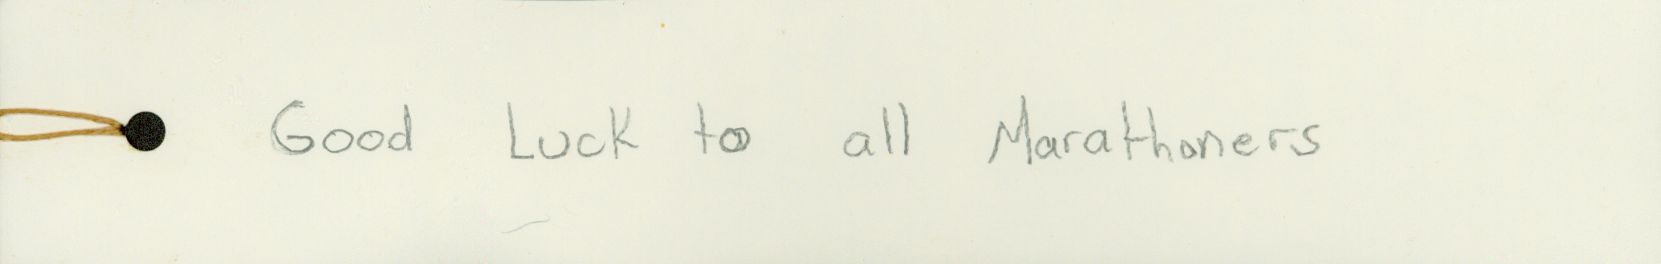 Good Luck to all Marathoners